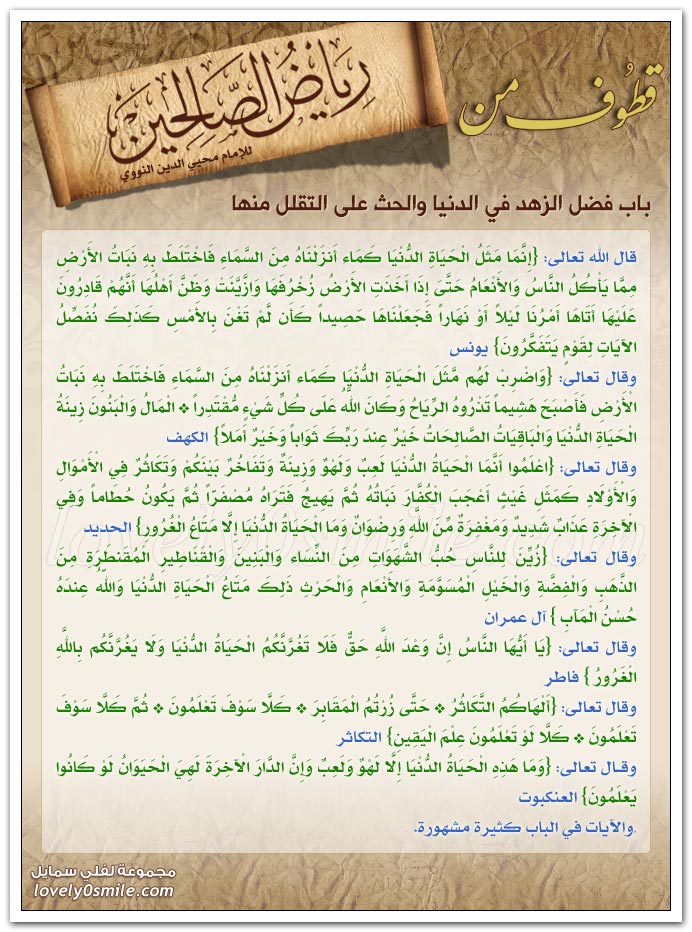 قطوف من
رياض الصالحين
للإمام محيي الدين النووي
باب فضل الزهد في الدنيا والحث على التقلل منها
قال الله تعالى: {إِنَّمَا مَثَلُ الْحَيَاةِ الدُّنْيَا كَمَاء أَنزَلْنَاهُ مِنَ السَّمَاءِ فَاخْتَلَطَ بِهِ نَبَاتُ الأَرْضِ
مِمَّا يَأْكُلُ النَّاسُ وَالأَنْعَامُ حَتَّىَ إِذَا أَخَذَتِ الأَرْضُ زُخْرُفَهَا وَازَّيَّنَتْ وَظَنَّ أَهْلُهَا أَنَّهُمْ قَادِرُونَ
عَلَيْهَا أَتَاهَا أَمْرُنَا لَيْلاً أَوْ نَهَاراً فَجَعَلْنَاهَا حَصِيداً كَأَن لَّمْ تَغْنَ بِالأَمْسِ كَذَلِكَ نُفَصِّلُ
الآيَاتِ لِقَوْمٍ يَتَفَكَّرُونَ} يونس
وقال تعالى: {وَاضْرِبْ لَهُم مَّثَلَ الْحَيَاةِ الدُّنْيَا كَمَاء أَنزَلْنَاهُ مِنَ السَّمَاءِ فَاخْتَلَطَ بِهِ نَبَاتُ
الْأَرْضِ فَأَصْبَحَ هَشِيماً تَذْرُوهُ الرِّيَاحُ وَكَانَ اللَّهُ عَلَى كُلِّ شَيْءٍ مُّقْتَدِراً * الْمَالُ وَالْبَنُونَ زِينَةُ
الْحَيَاةِ الدُّنْيَا وَالْبَاقِيَاتُ الصَّالِحَاتُ خَيْرٌ عِندَ رَبِّكَ ثَوَاباً وَخَيْرٌ أَمَلاً} الكهف
وقال تعالى: {اعْلَمُوا أَنَّمَا الْحَيَاةُ الدُّنْيَا لَعِبٌ وَلَهْوٌ وَزِينَةٌ وَتَفَاخُرٌ بَيْنَكُمْ وَتَكَاثُرٌ فِي الْأَمْوَالِ
وَالْأَوْلَادِ كَمَثَلِ غَيْثٍ أَعْجَبَ الْكُفَّارَ نَبَاتُهُ ثُمَّ يَهِيجُ فَتَرَاهُ مُصْفَرّاً ثُمَّ يَكُونُ حُطَاماً وَفِي
الْآخِرَةِ عَذَابٌ شَدِيدٌ وَمَغْفِرَةٌ مِّنَ اللَّهِ وَرِضْوَانٌ وَمَا الْحَيَاةُ الدُّنْيَا إِلَّا مَتَاعُ الْغُرُورِ} الحديد
وقال تعالى: {زُيِّنَ لِلنَّاسِ حُبُّ الشَّهَوَاتِ مِنَ النِّسَاء وَالْبَنِينَ وَالْقَنَاطِيرِ الْمُقَنطَرَةِ مِنَ
الذَّهَبِ وَالْفِضَّةِ وَالْخَيْلِ الْمُسَوَّمَةِ وَالأَنْعَامِ وَالْحَرْثِ ذَلِكَ مَتَاعُ الْحَيَاةِ الدُّنْيَا وَاللَّهُ عِندَهُ
حُسْنُ الْمَآبِ } آل عمران
وقال تعالى: {يَا أَيُّهَا النَّاسُ إِنَّ وَعْدَ اللَّهِ حَقٌّ فَلَا تَغُرَّنَّكُمُ الْحَيَاةُ الدُّنْيَا وَلَا يَغُرَّنَّكُم بِاللَّهِ
الْغَرُورُ } فاطر
وقال تعالى: {أَلْهَاكُمُ التَّكَاثُرُ * حَتَّى زُرْتُمُ الْمَقَابِرَ * كَلَّا سَوْفَ تَعْلَمُونَ * ثُمَّ كَلَّا سَوْفَ
تَعْلَمُونَ * كَلَّا لَوْ تَعْلَمُونَ عِلْمَ الْيَقِينِ} التكاثر
وقال تعالى: {وَمَا هَذِهِ الْحَيَاةُ الدُّنْيَا إِلَّا لَهْوٌ وَلَعِبٌ وَإِنَّ الدَّارَ الْآخِرَةَ لَهِيَ الْحَيَوَانُ لَوْ كَانُوا
يَعْلَمُونَ} العنكبوت
.والآيات في الباب كثيرة مشهورة.
مجموعة لفلي سمايل
lovely0smile.com